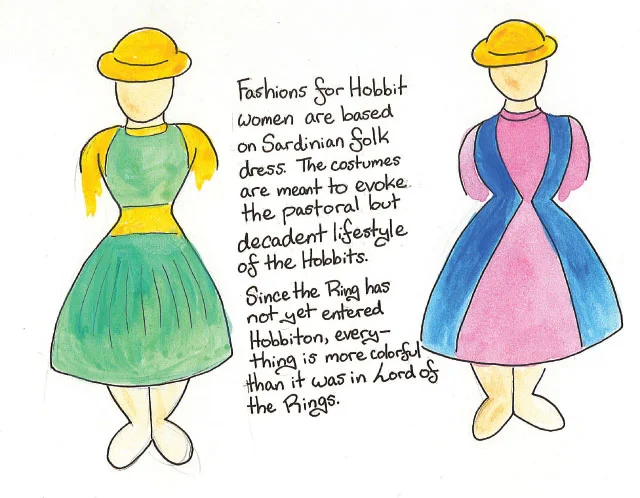 Fashions for Hobbit
women are based
on Sardinian folk
dress. The costumes
are meant to evoke
the pastoral but
decadent lifestyle
of the Hobbits.
Since the Ring has
not yet entered
Hobbiton, every-
thing is more colorful
than it was in Lord of
the Rings.